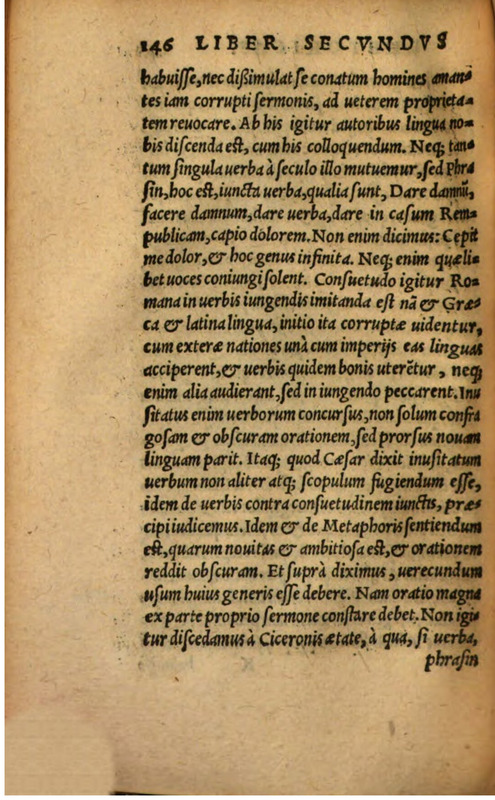 146 LIBER SECVNDVS
habuisse, nec dißimulat se conatum homines aman-
tes iam corrupti sermonis, ad ueterem proprieta-
tem reuocare. Ab his igitur autoribus lingua no-
bis discenda est, cum his colloquendum. Neq; tan-
tum singula uerba à seculo illo mutuemur, sed phra
sin, hoc est, iuncta uerba, qualia sunt, Dare damnū,
facere damnum, dare uerba, dare in casum Rem-
publicam, capio dolorem. Non enim dicimus: Cępit
me dolor, & hoc genus infinita. Neq; enim quæli-
bet uoces coniungi solent. Consuetudo igitur Ro-
mana in uerbis iungendis imitanda est nā & Græ-
ca & latina lingua, initio ita corruptæ uidentur,
cum exteræ nationes unà cum imperijs eas linguas
acciperent, & uerbis quidem bonis uterētur, neq;
enim alia audierant, sed in iungendo peccarent. Inu
sitatus enim uerborum concursus, non solum confra
gosam & obscuram orationem, sed prorsus nouam
linguam parit. Itaq; quod Cæsar dixit inusitatum
uerbum non aliter atq; scopulum fugiendum esse,
idem de uerbis contra consuetudinem iunctis, præ-
cipi iudicemus. Idem & de Metaphoris sentiendum
est, quarum nouitas & ambitiosa est, & orationem
reddit obscuram. Et suprà diximus, uerecundum
usum huius generis esse debere. Nam oratio magna
ex parte proprio sermone constare debet. Non igi-
tur discedamus à Ciceronis ætate, à qua, si uerba,
phrasin